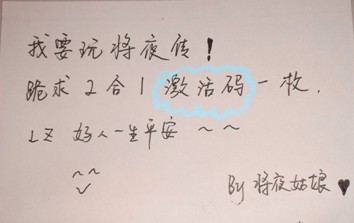 我要玩将夜传！
跪求2合1激活码一枚.
LZ 好人一生平安 ~ ~
By 将夜姑娘 ♥